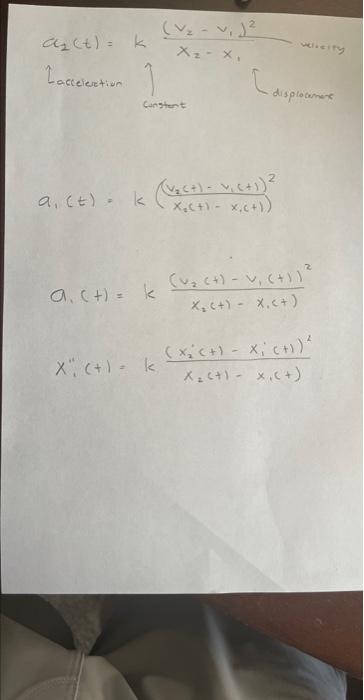 a₂(t) = k (v₂ - v₁)² / x₂ - x₁ velocity
↑ acceleration ↑ constant displacement
a₁(t) = k ((v₂(t) - v₁(t)) / x₂(t) - x₁(t))²
a₁(t) = k (v₂(t) - v₁(t))² / x₂(t) - x₁(t)
x₁''(t) = k (x₂'(t) - x₁'(t))² / x₂(t) - x₁(t)